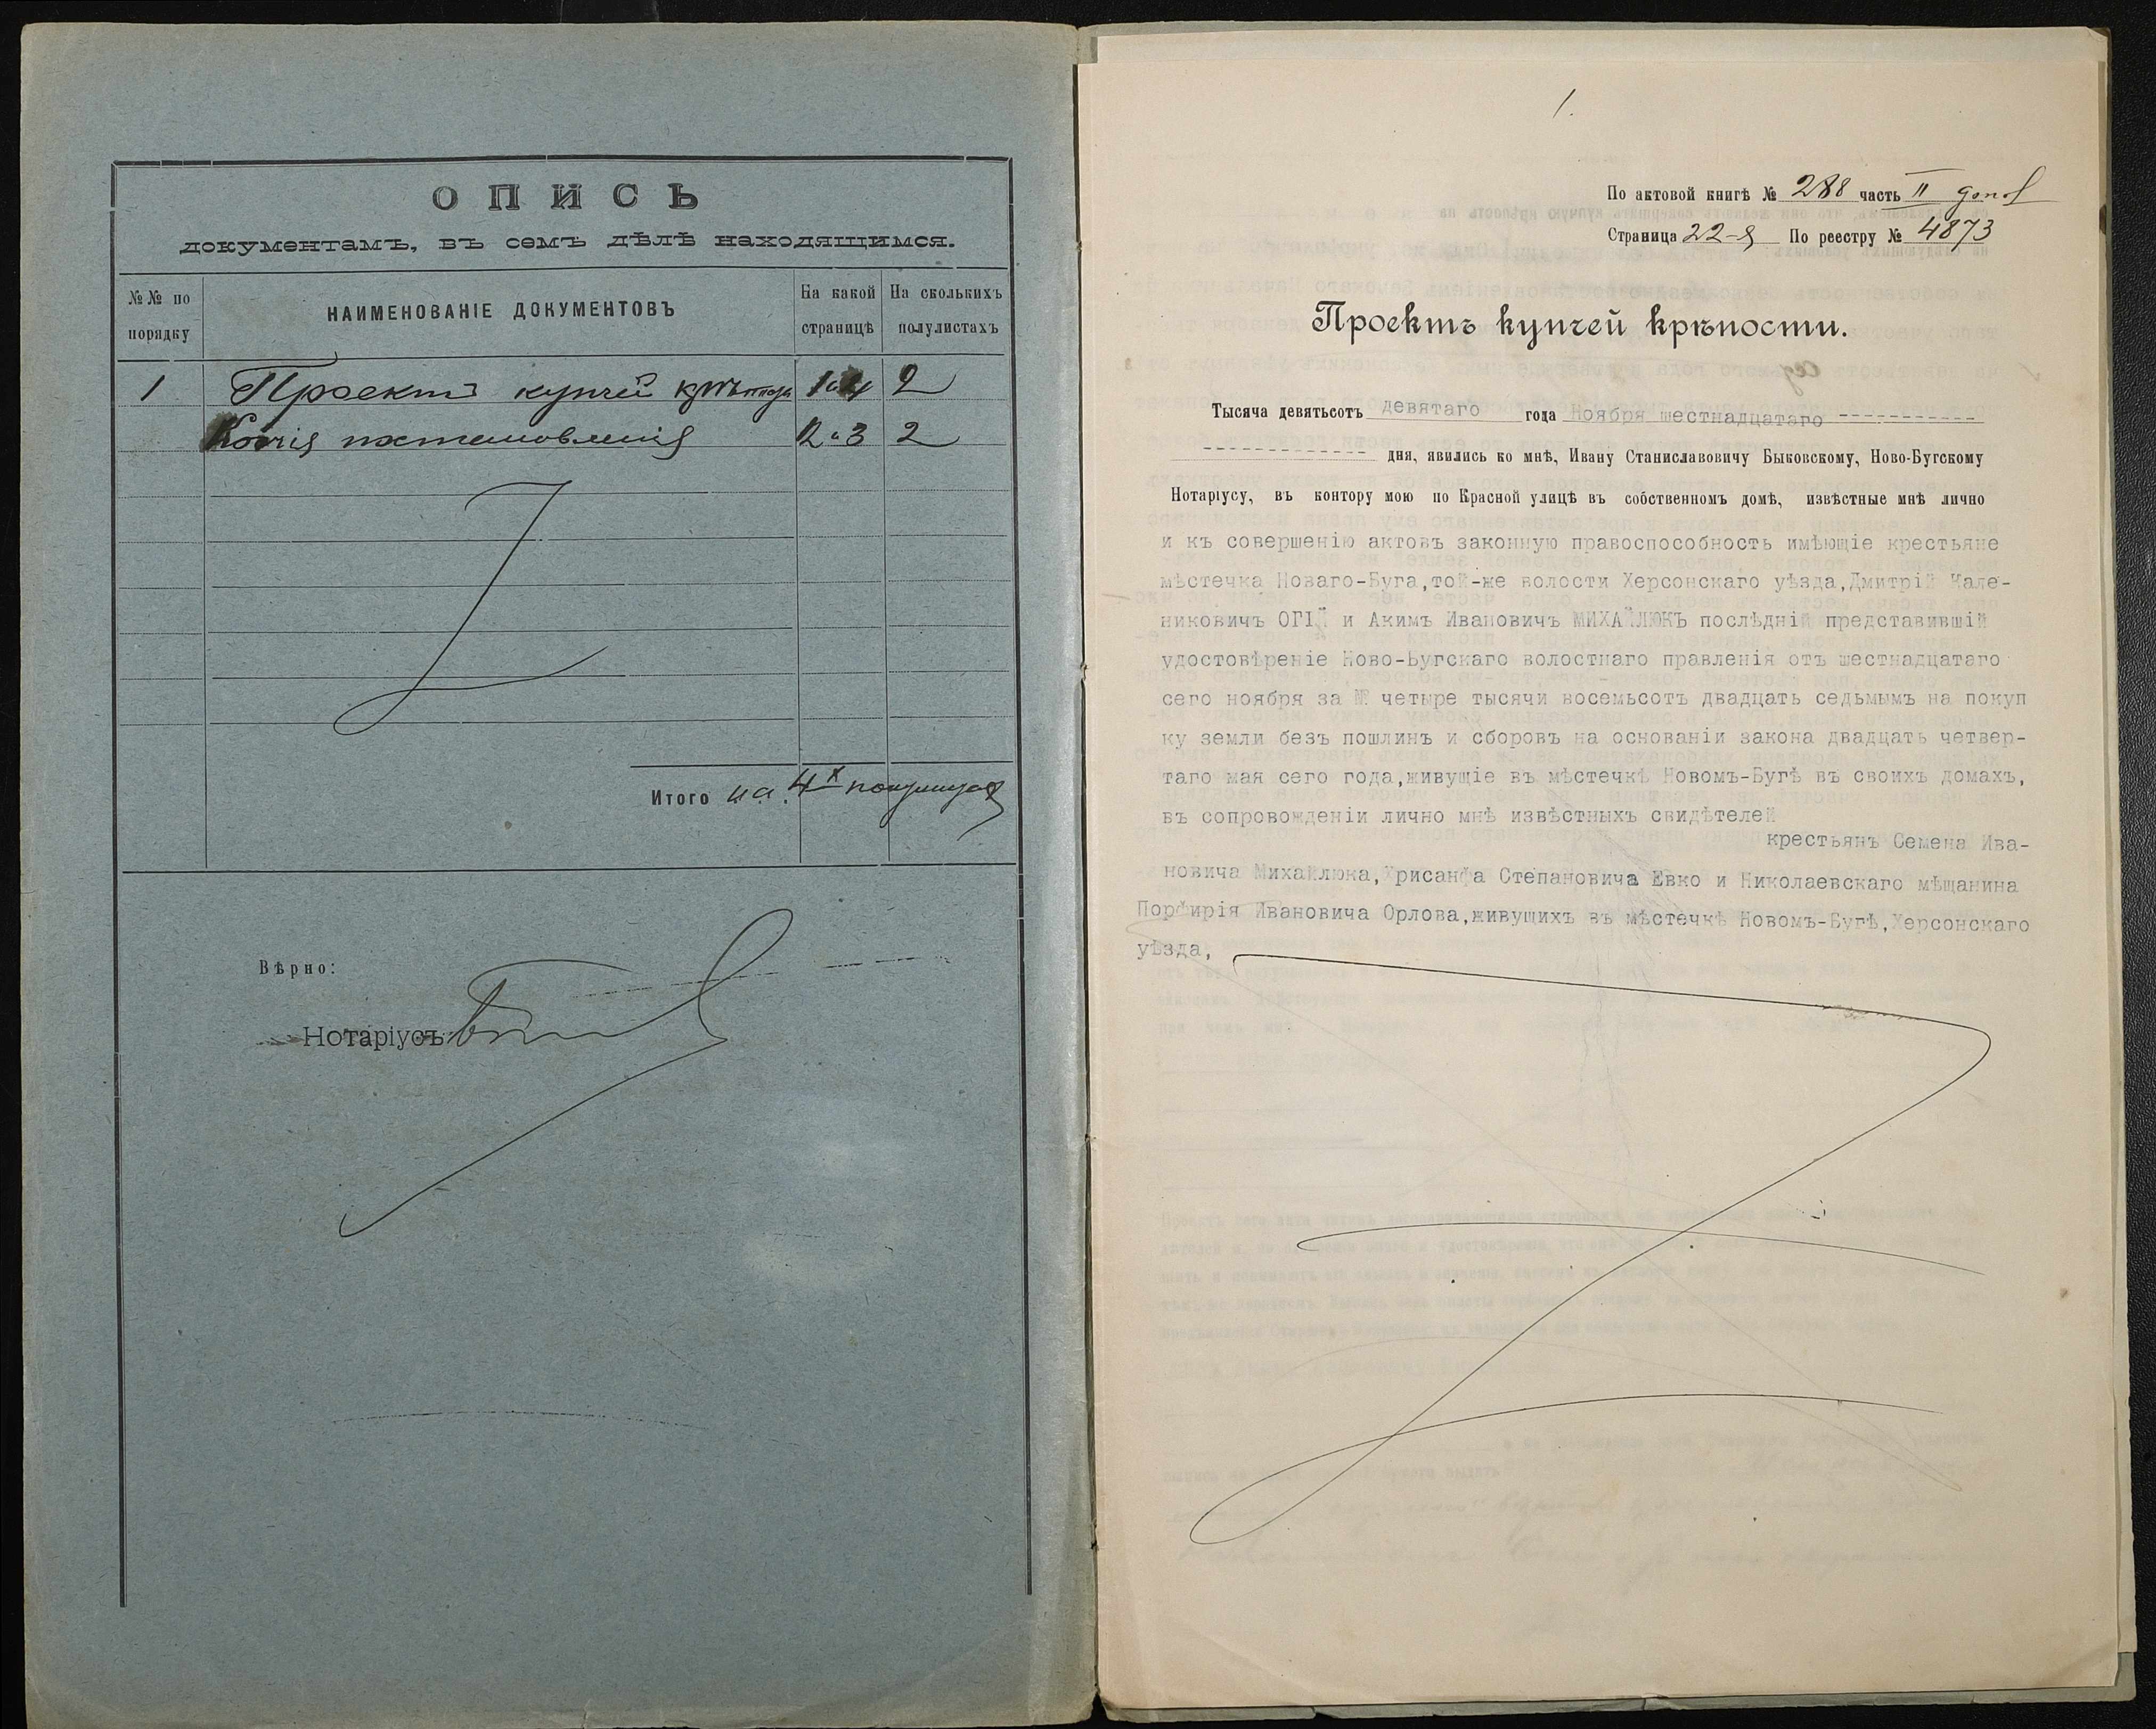 ОПИСЬ
документамъ, въ семъ дѣлѣ находящимся.
№№ по порядку
НАИМЕНОВАНІЕ ДОКУМЕНТОВЪ
На какой страницѣ
На сколькихъ полулистахъ
1 Проектъ купчей крѣпости 1 и 4 2
Копія постановленія 2 и 3 2
Итого на 4х полулистах
Вѣрно:
Нотаріусъ
1.
По актовой книгѣ № 288 часть II
Страница 22-я По реестру № 4873
Проектъ купчей крѣпости.
Тысяча девятьсотъ девятаго года Ноября шестнадцатаго -----------
------------- дня, явились ко мнѣ, Ивану Станиславовичу Быковскому, Ново-Бугскому
Нотаріусу, въ контору мою по Красной улицѣ въ собственномъ домѣ, извѣстные мнѣ лично
и къ совершенію актовъ законную правоспособность имѣющіе крестьяне
мѣстечка Новаго-Буга,той-же волости Херсонскаго уѣзда,Дмитрій Кале-
никовичъ ОГІЙ и Акимъ Ивановичъ МИХАЙЛЮКЪ послѣдній представившій
удостовѣреніе Ново-Бугскаго волостнаго правленія отъ шестнадцатаго
сего ноября за № четыре тысячи восемьсотъ двадцать седьмымъ на покуп
ку земли безъ пошлинъ и сборовъ на основаніи закона двадцать четвер-
таго мая сего года,живущіе въ мѣстечкѣ Новомъ-Бугѣ въ своихъ домахъ,
въ сопровожденіи лично мнѣ извѣстныхъ свидѣтелей
крестьянъ Семена Ива-
новича Михайлюка,Хрисанфа Степановича Евко и Николаевскаго мѣщанина
Порфирія Ивановича Орлова,живущихъ въ мѣстечкѣ Новомъ-Бугѣ,Херсонскаго
уѣзда,